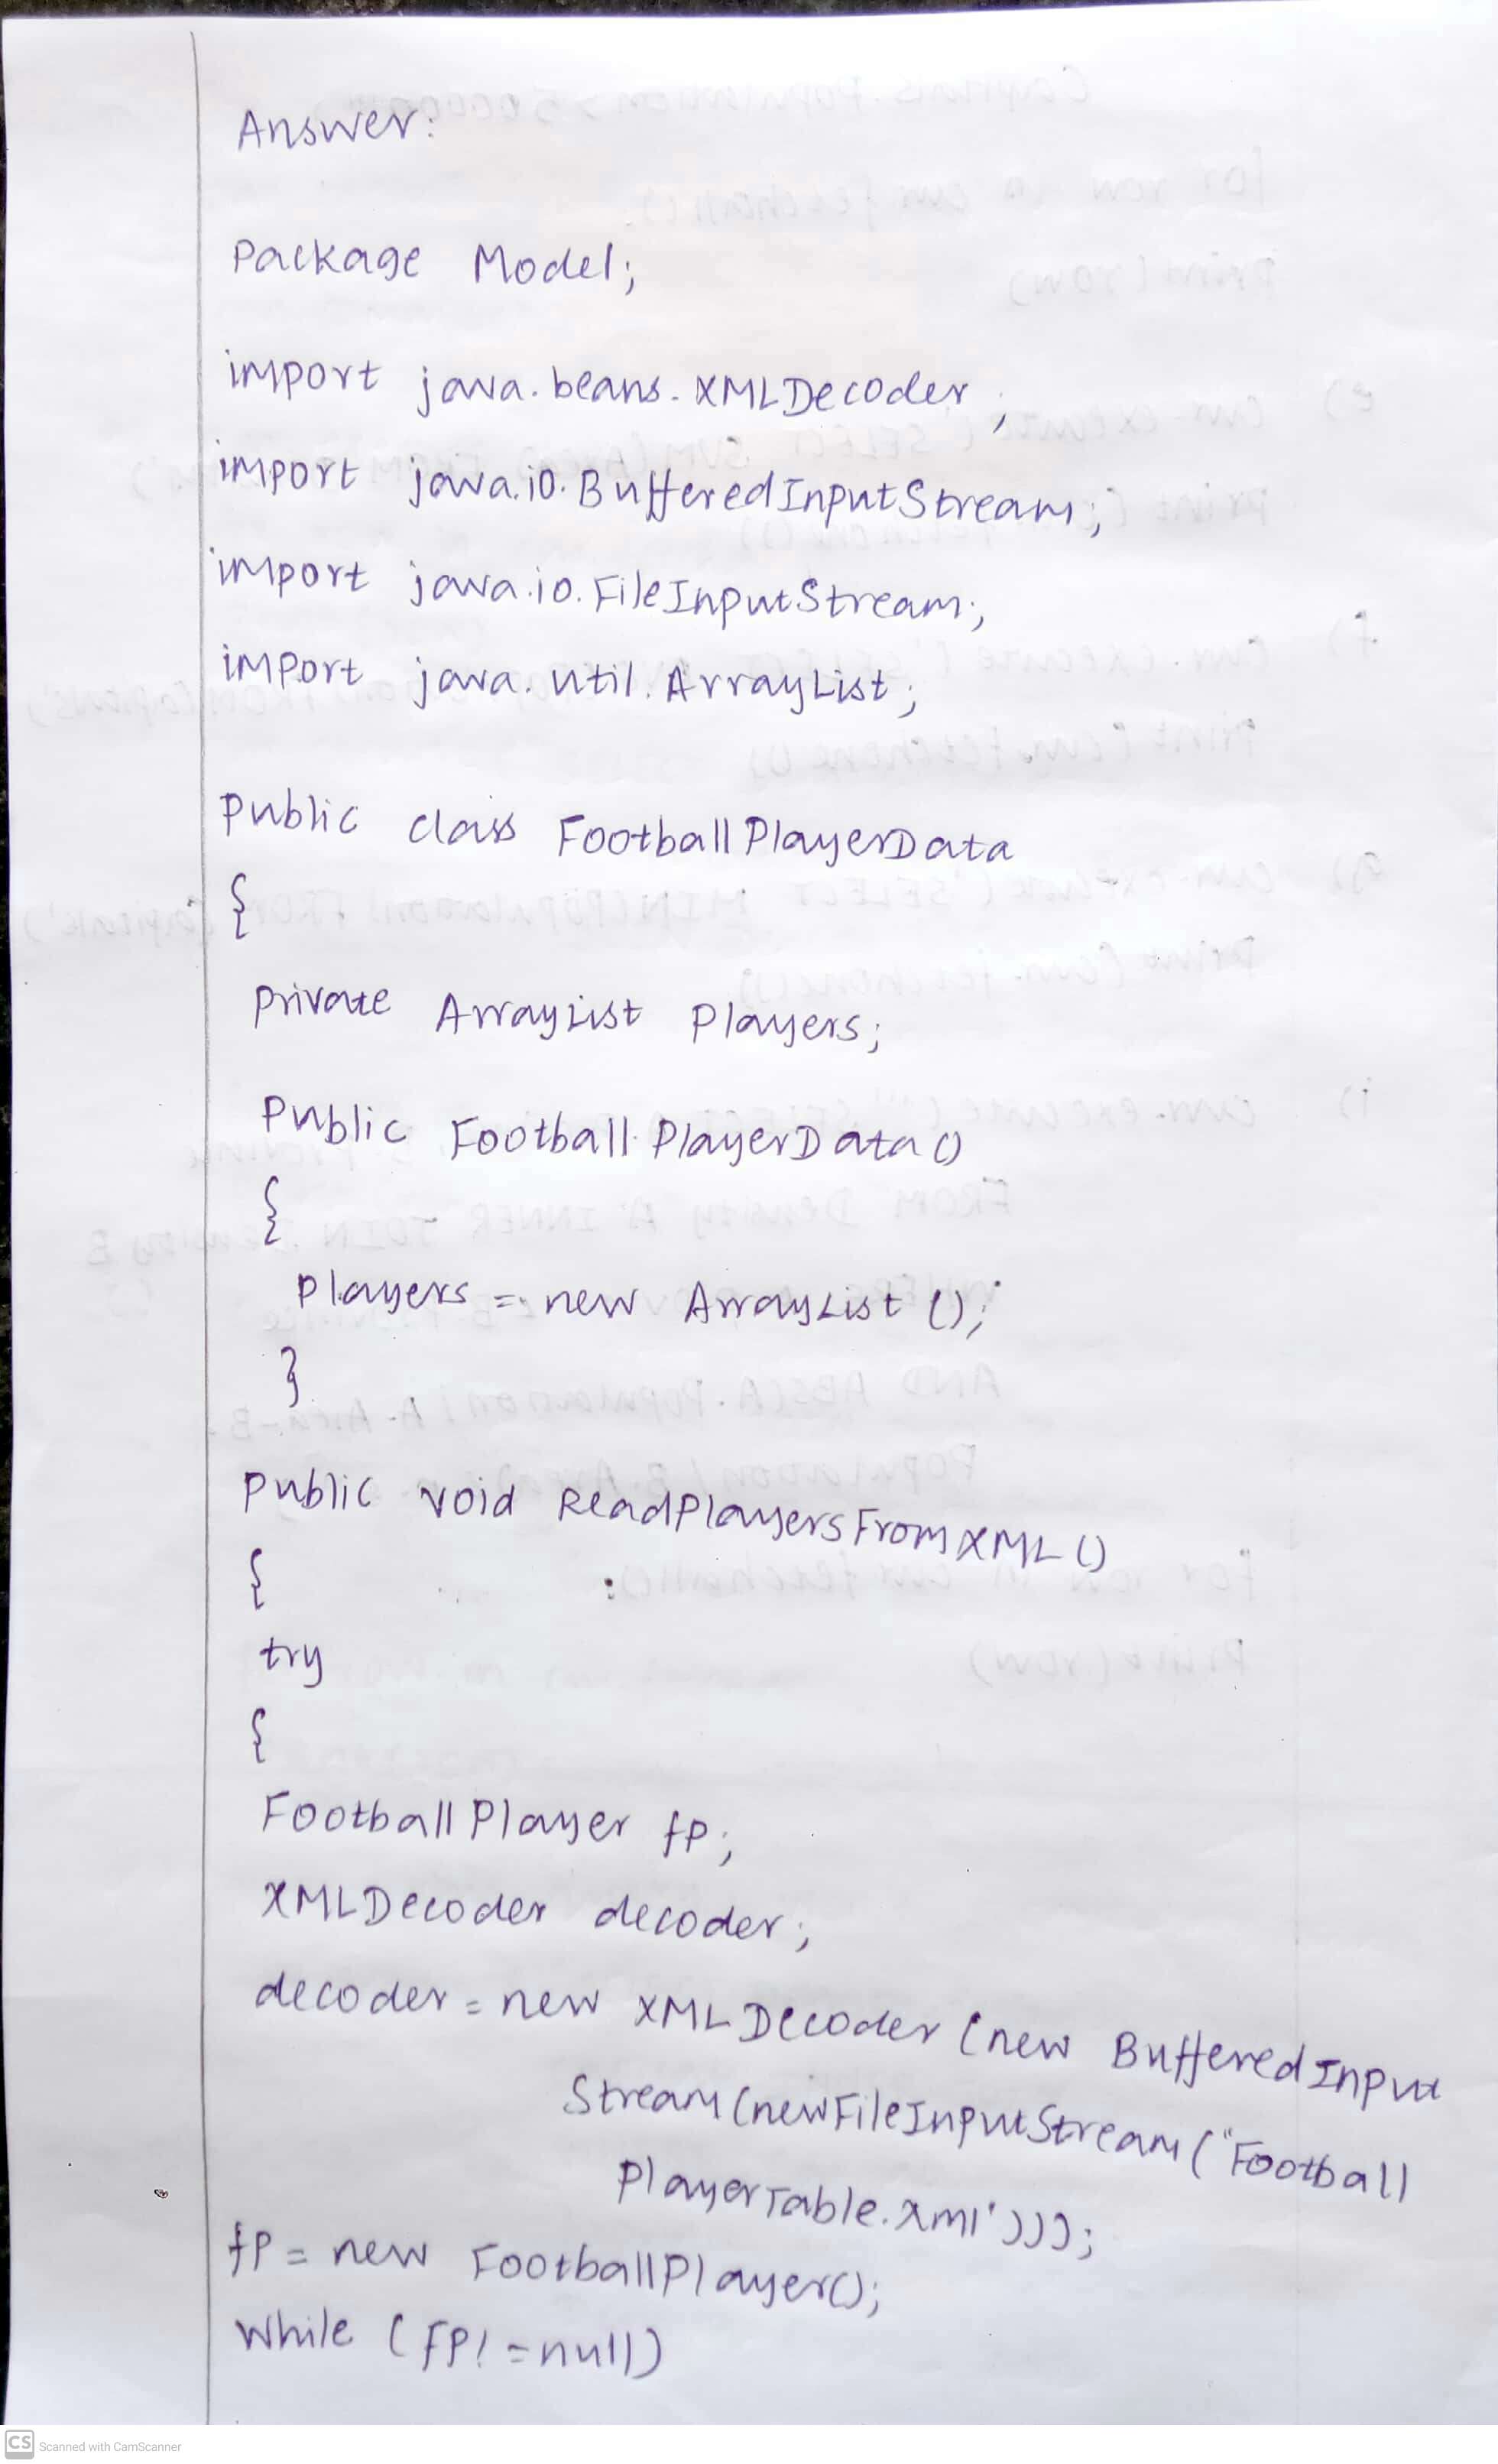 Answer:
Package Model;
import java.beans.XMLDecoder;
import java.io.BufferedInputStream;
import java.io.FileInputStream;
import java.util.ArrayList;
Public class FootballPlayerData
{
Private ArrayList Players;
Public FootballPlayerData()
{
Players = new ArrayList();
}
Public void ReadPlayersFromXML()
{
try
{
FootballPlayer fp;
XMLDecoder decoder;
decoder = new XMLDecoder (new BufferedInput
Stream (newFileInputStream ("Football
PlayerTable.xml')));
fp = new FootballPlayer();
While (fp! = null)
CS Scanned with CamScanner